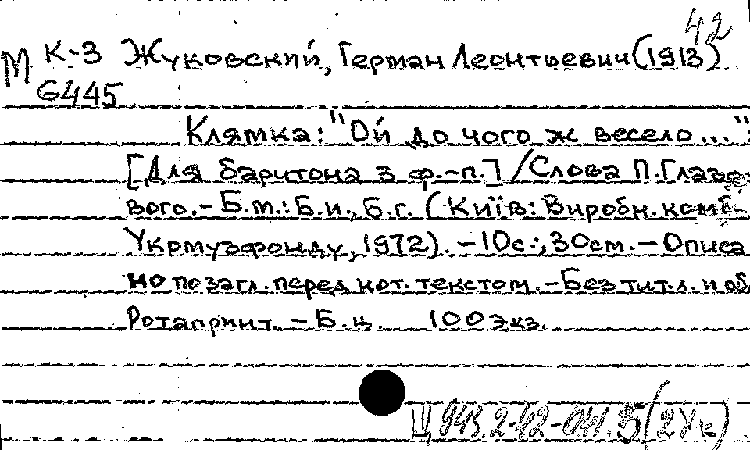 42
М К-3 Жуковский, Герман Леонтьевич (1913)
6445
Клямка: "Ой до чого ж весело..."
[Для баритона з ф.-п.] / Слова П. Глазо-
вого. - Б.м.: Б.и., Б.г. (Київ: Виробн. комб-
Укрмузфонду, 1972). - 10с.; 30см. - Описа
но по загл. перед нот. текстом. - Без тит. л. и об
Ротапринт. - Б.ц. 100 экз.
Ц 943.2-42-041.5 (2Ук)